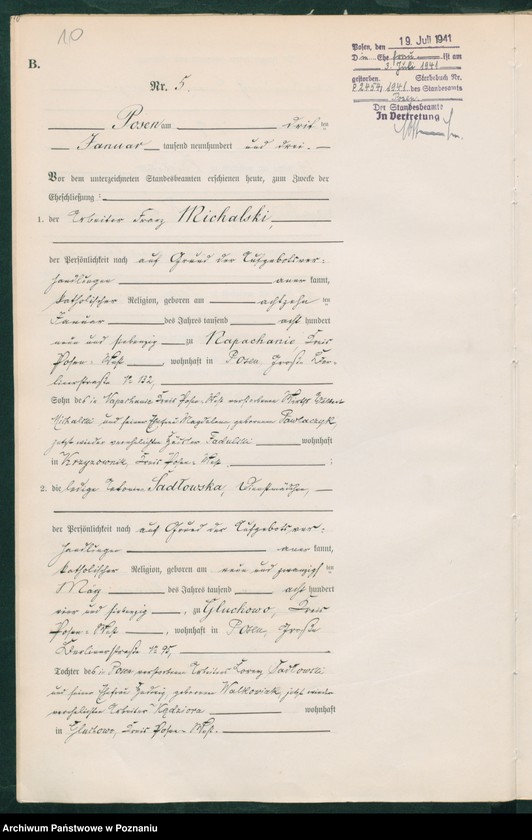 10
19. Juli 1941
Posen, den
Die Ehefrau ist am
3. Juli 1941
gestorben. Sterbebuch Nr.
P2454/1941 des Standesamts
Posen
Der Standesbeamte
In Vertretung
B.
Nr. 5.
Posen am dritten
Januar tausend neunhundert und drei.
Vor dem unterzeichneten Standesbeamten erschienen heute, zum Zwecke der
Eheschließung:
1. der Arbeiter Franz Michalski,
der Persönlichkeit nach auf Grund der Aufgebotsver=
handlungen anerkannt,
katholischer Religion, geboren am achtzehnten
Januar des Jahres tausend acht hundert
neun und siebenzig zu Napachanie, Kreis
Posen=West, wohnhaft in Posen, Große Ber=
linerstraße No 132,
Sohn des in Napachanie Kreis Posen=West verstorbenen
Michalski und seiner Ehefrau Magdalena, geborenen Pawlaczyk,
jetzt wieder verehelichten Häusler wohnhaft
in Krzyzownik, Kreis Posen=West;
2. die ledige Antonie Sadłowska, Dienstmädchen,
der Persönlichkeit nach auf Grund der Aufgebotsver=
handlungen anerkannt,
katholischer Religion, geboren am neun und zwanzigsten
März des Jahres tausend acht hundert
vier und siebenzig, zu Gluchowo, Kreis
Posen=West, wohnhaft in Posen, Große
Berlinerstraße No 95,
Tochter des in Posen verstorbenen Arbeiters Lorenz Sadłowski
und seiner Ehefrau Hedwig geborenen Walkowiak, jetzt wieder
verehelichten Arbeiter Kędziora wohnhaft
in Gluchowo, Kreis Posen=West.
Archiwum Państwowe w Poznaniu